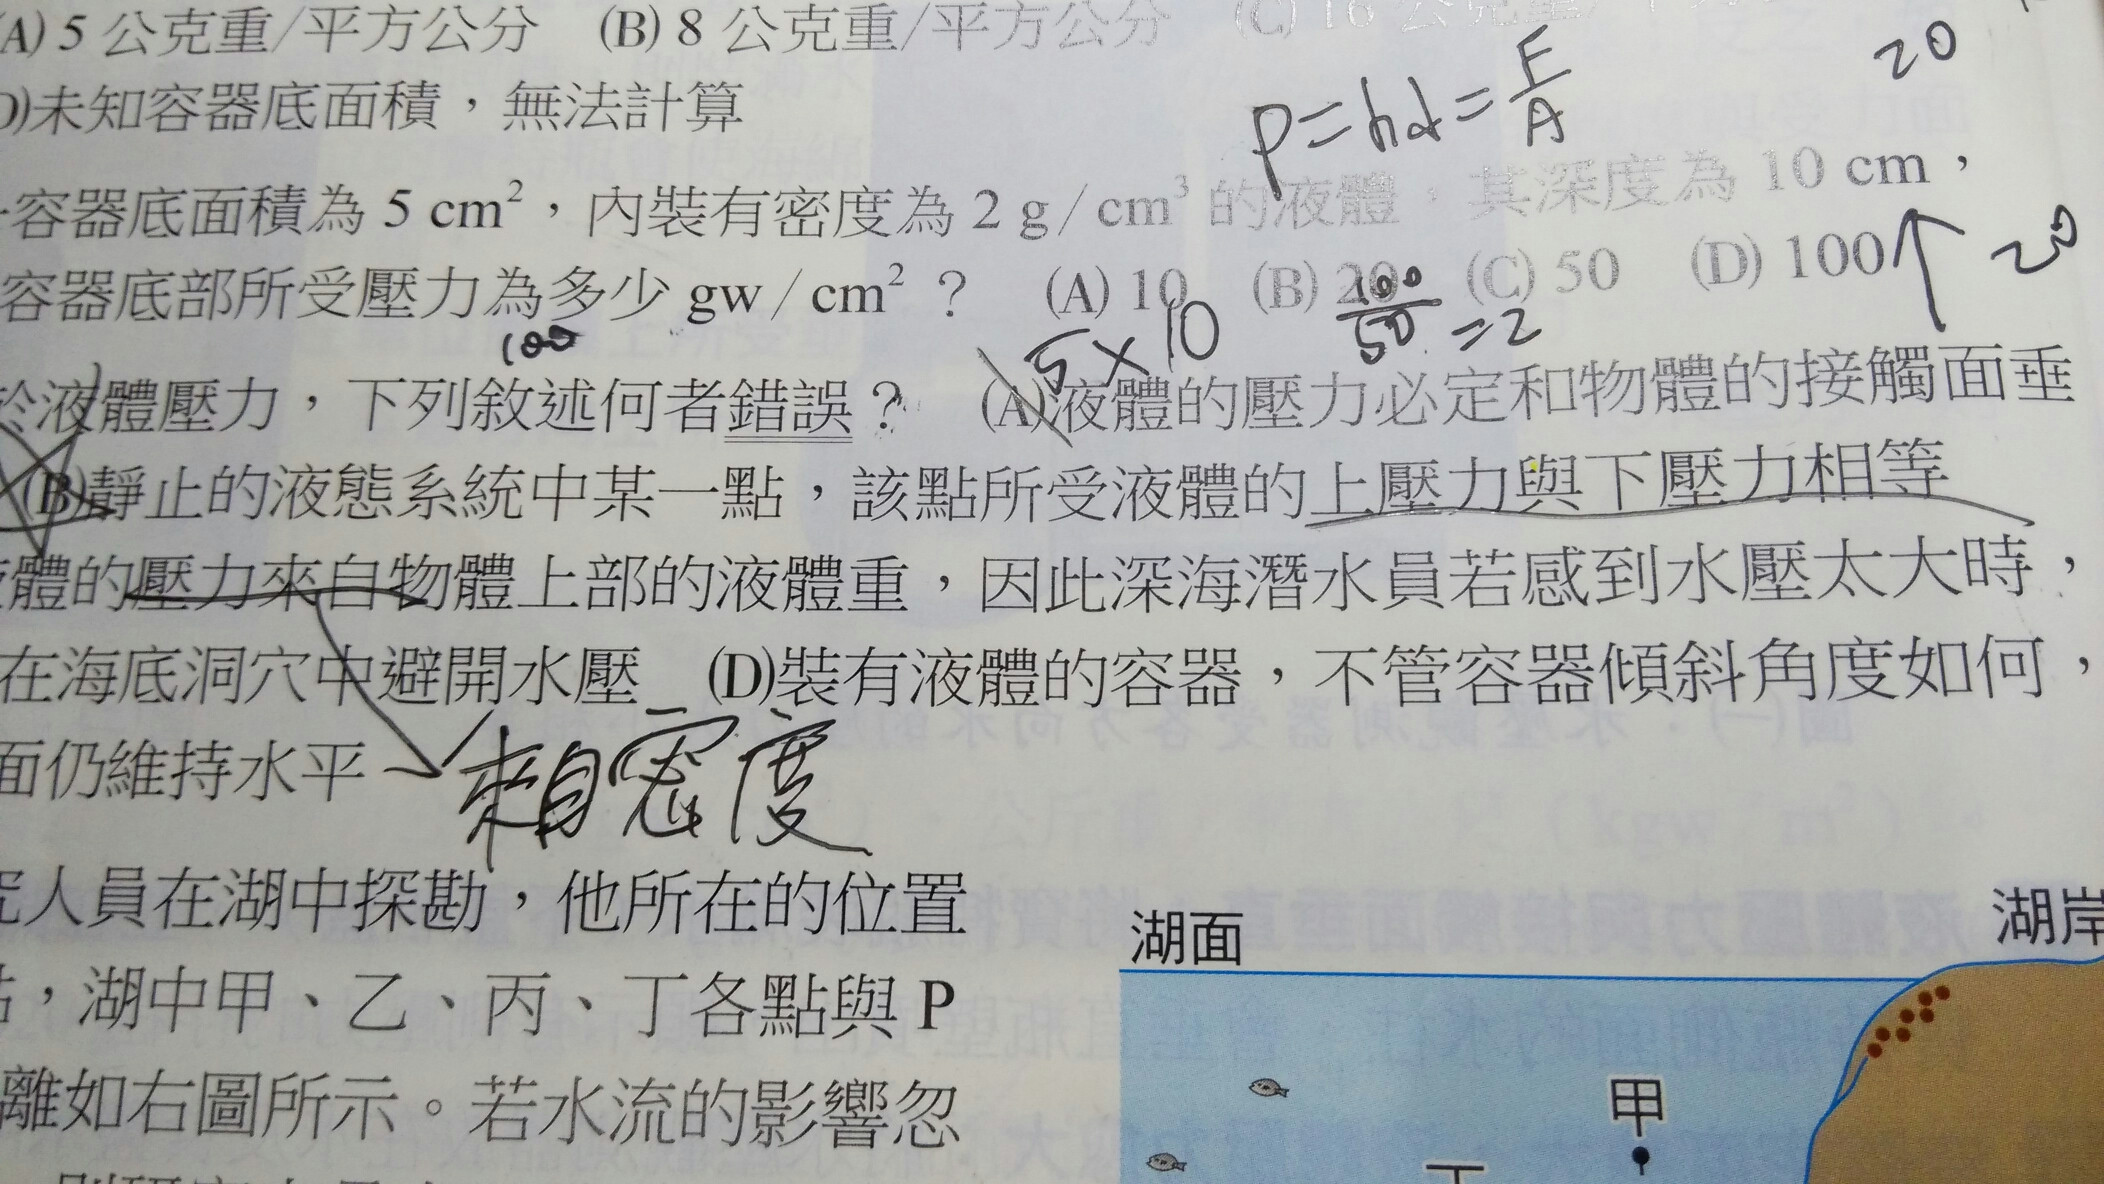 (A) 5 公克重/平方公分 (B) 8 公克重/平方公分 (C) 16 公克重/平方
20
D)未知容器底面積，無法計算
P=hd=F/A
容器底面積為 5 cm²，內裝有密度為 2 g/cm³ 的液體，其深度為 10 cm，
容器底部所受壓力為多少 gw/cm²？ (A) 10 (B) 20 (C) 50 (D) 100
20
100
5×10
100/50=2
於液體壓力，下列敘述何者錯誤？ (A)液體的壓力必定和物體的接觸面垂
(B)靜止的液態系統中某一點，該點所受液體的上壓力與下壓力相等
體的壓力來自物體上部的液體重，因此深海潛水員若感到水壓太大時，
在海底洞穴中避開水壓 (D)裝有液體的容器，不管容器傾斜角度如何，
面仍維持水平
賴密度
究人員在湖中探勘，他所在的位置
，湖中甲、乙、丙、丁各點與 P
離如右圖所示。若水流的影響忽
湖面
湖岸
甲
丁